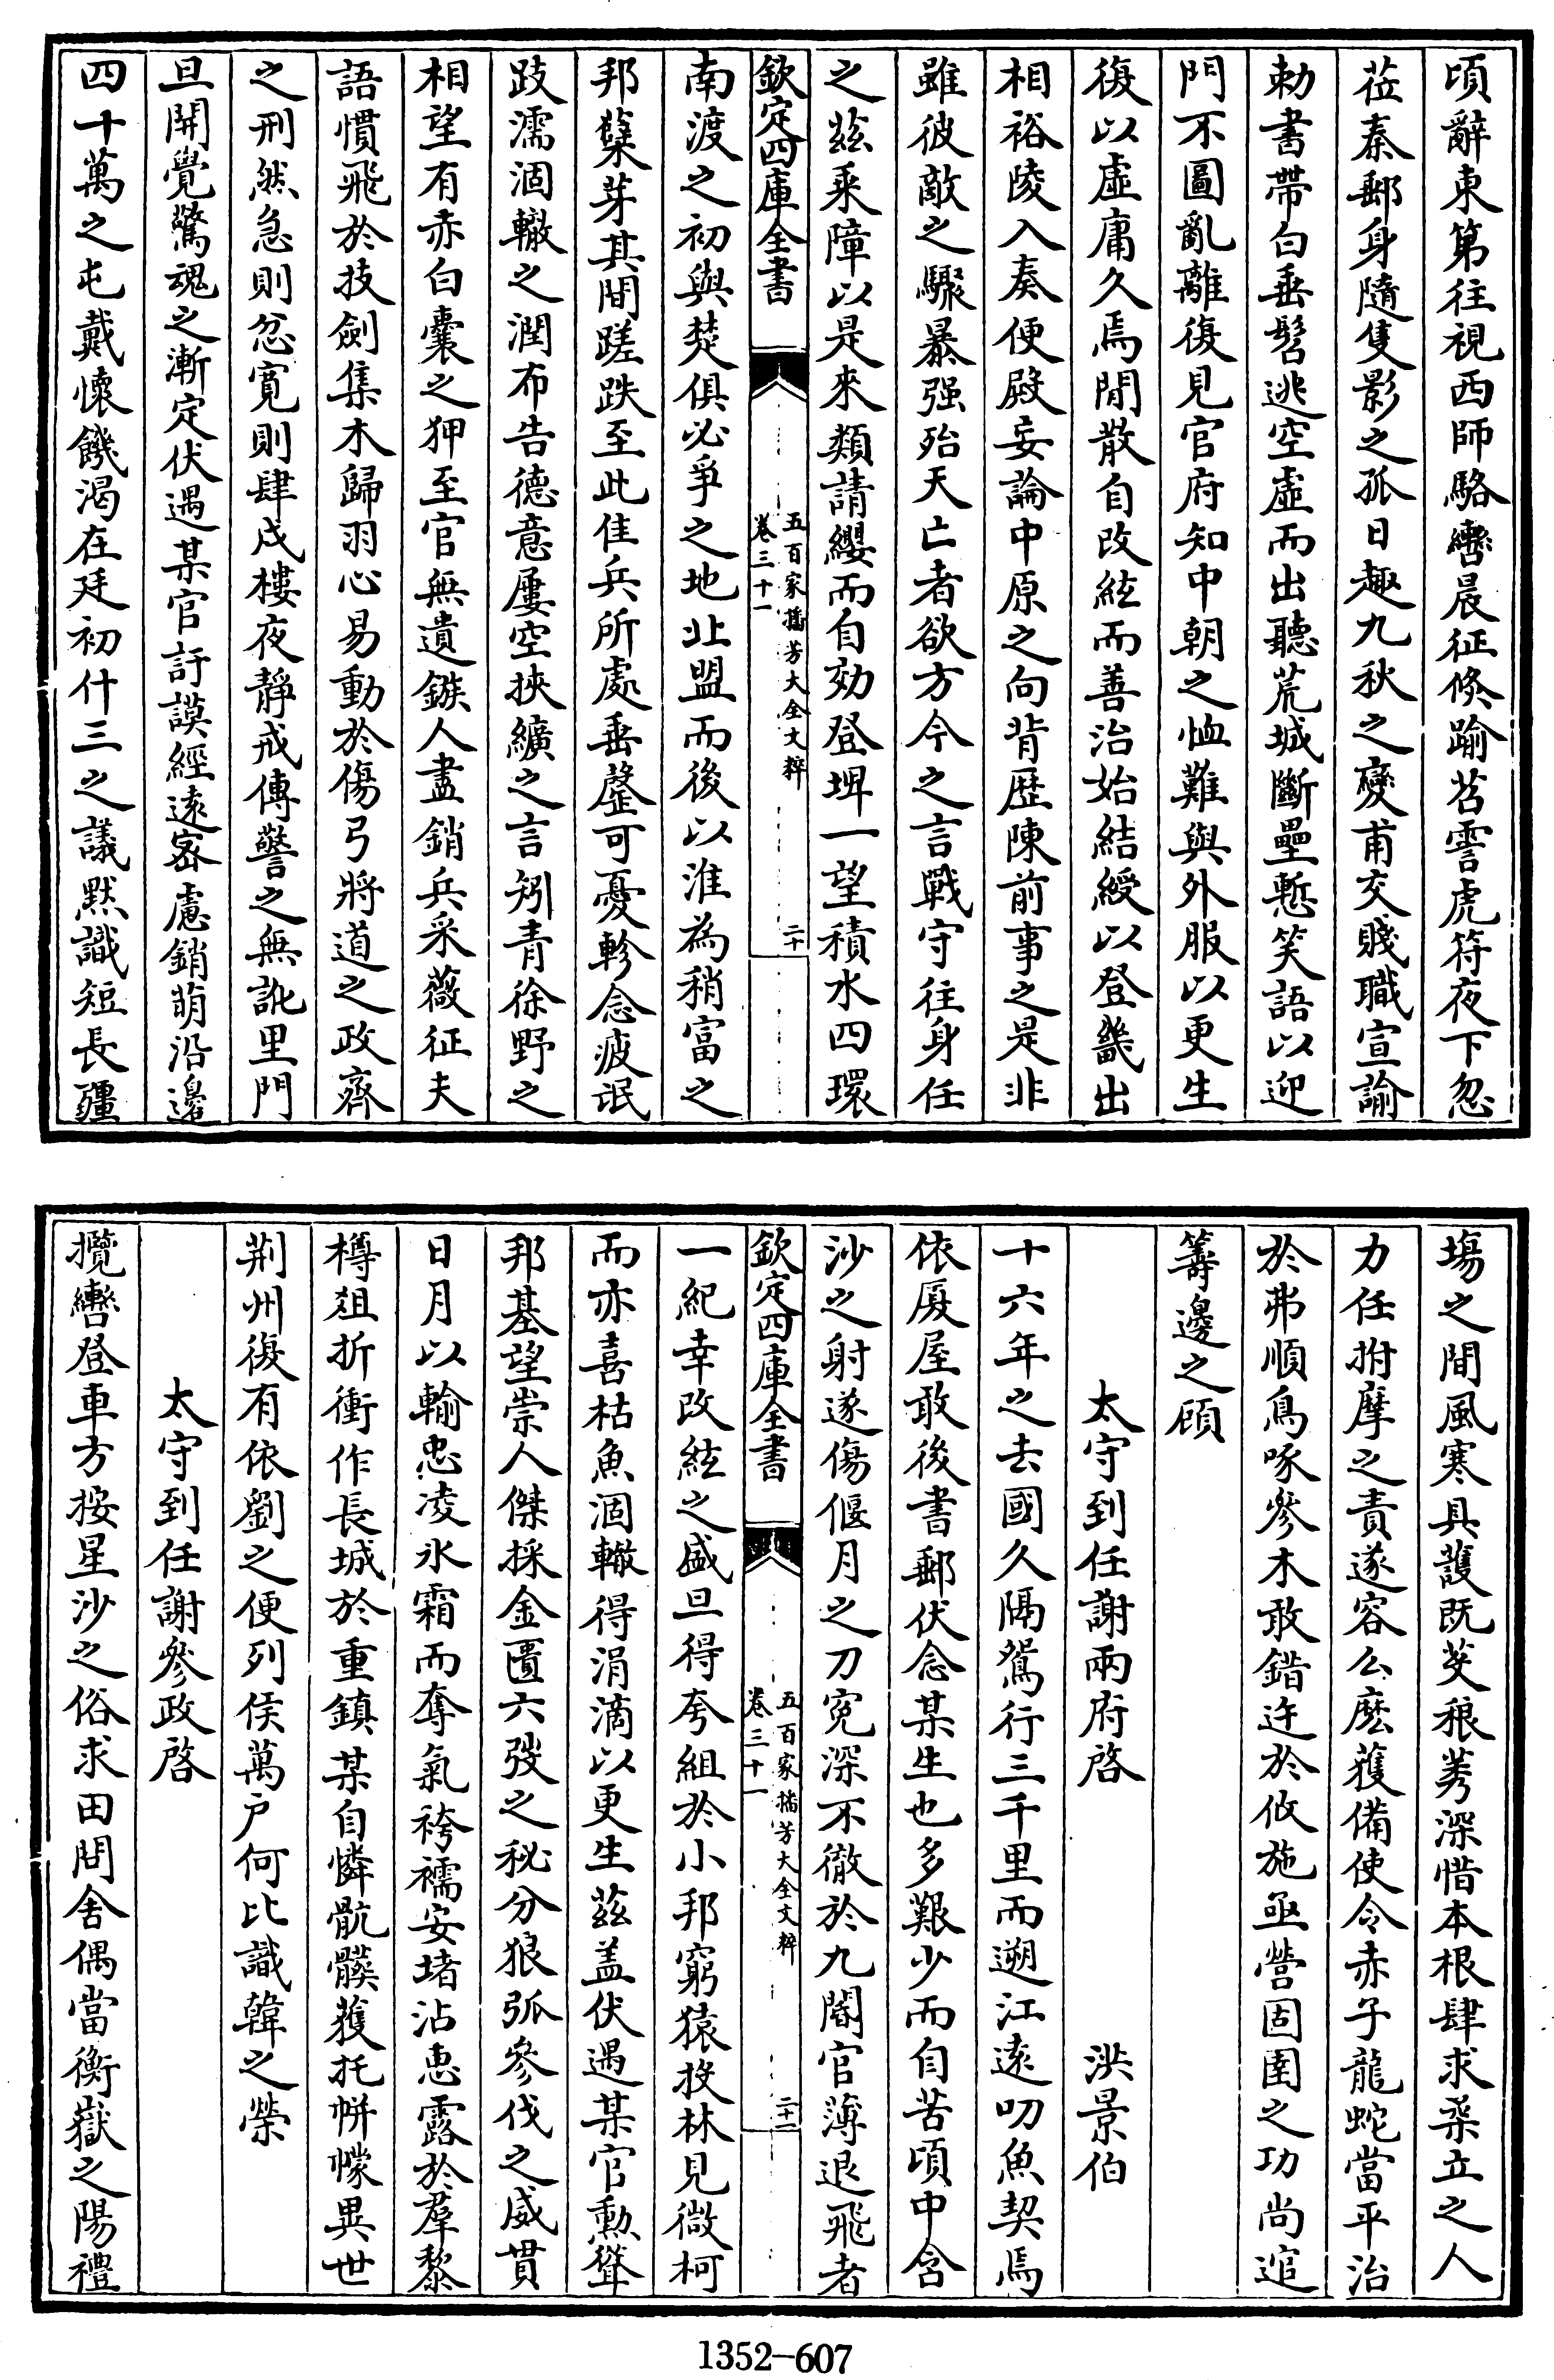 頃辭東第往視西師駱轡晨征倐踰苕霅虎符夜下忽
莅秦郵身隨隻影之孤日趣九秋之變甫交賤職宣諭
勅書帶白垂髫逃空虛而出聽荒城斷壘慙笑語以迎
門不圖亂離復見官府知中朝之恤難與外服以更生
復以虛庸久焉閒散自改絃而善治始結綬以登畿出
相裕陵入奏便殿妄論中原之向背歴陳前事之是非
雖彼敵之驟暴强殆天亡者欲方今之言戰守往身任
之兹乘障以是來類請纓而自効登埤一望積水四環
欽定四庫全書
五百家播芳大全文粹
卷三十一
二十
南渡之初與楚俱必爭之地北盟而後以淮為稍富之
邦蘖芽其間蹉跌至此佳兵所處垂罄可憂軫念疲氓
跂濡涸轍之潤布告德意屢空挾纊之言矧青徐野之
相望有赤白囊之狎至官無遺鏃人盡銷兵采薇征夫
語慣飛於技劍集木歸羽心易動於傷弓將道之政齊
之刑然急則忿寛則肆戍樓夜靜戒傳警之無訛里門
旦開覺驚魂之漸定伏遇某官訏謨經遠密慮銷萌沿邊
四十萬之屯戴懷饑渴在廷初什三之議黙識短長疆
塲之間風寒具護既芟稂莠深惜本根肆求桀立之人
力任拊摩之責遂容么麽獲備使令赤子龍蛇當平治
於弗順鳥啄參木敢錯迕於攸施亟營固圉之功尚逭
籌邊之顧
太守到任謝兩府啓
洪景伯
十六年之去國久隔鴛行三千里而遡江遠叨魚契焉
依厦屋敢後書郵伏念某生也多艱少而自苦頃中含
沙之射遂傷偃月之刀寃深不徹於九閽官薄退飛者
欽定四庫全書
五百家播芳大全文粹
卷三十一
二十一
一紀幸改絃之盛旦得夸組於小邦窮猿投林見微柯
而亦喜枯魚涸轍得涓滴以更生兹盖伏遇某官勲聳
邦基望崇人傑採金匱六弢之秘分狼弧參伐之威貫
日月以輸忠凌氷霜而奪氣袴襦安堵沾恵露於羣黎
樽俎折衝作長城於重鎮某自憐骯髒獲托帡幪異世
荆州復有依劉之便列侯萬户何比識韓之榮
太守到任謝參政啓
攬轡登車方按星沙之俗求田問舍偶當衡嶽之陽禮
1352—607